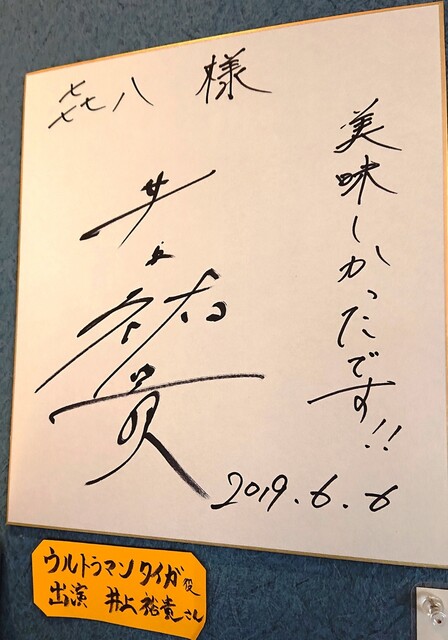 㐂八 様
美味しかったです!!
井上
祐貴
2019.6.6
ウルトラマンタイガ役
出演 井上祐貴さん